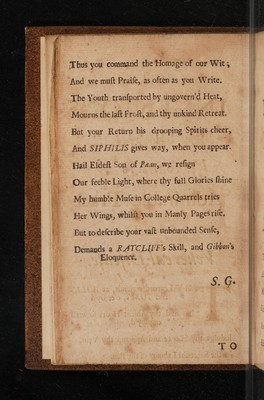 Thus you command the Homage of our Wit;
And we muſt Praiſe, as often as you Write.
The Youth tranſported by ungovern'd Heat,
Mourns the laſt Froſt, and thy unkind Retreat.
But your Return his drooping Spirits cheer,
And SIPHILIS gives way, when you appear.
Hail Eldeſt Son of Pæan, we reſign
Our feeble Light, where thy full Glories ſhine
My humble Muſe in College Quarrels tries
Her Wings, whilſt you in Manly Pages riſe.
But to deſcribe your vaſt unbounded Senſe,
Demands a RATCLIFF's Skill, and Gibbon's
Eloquence.
S. G.
TO